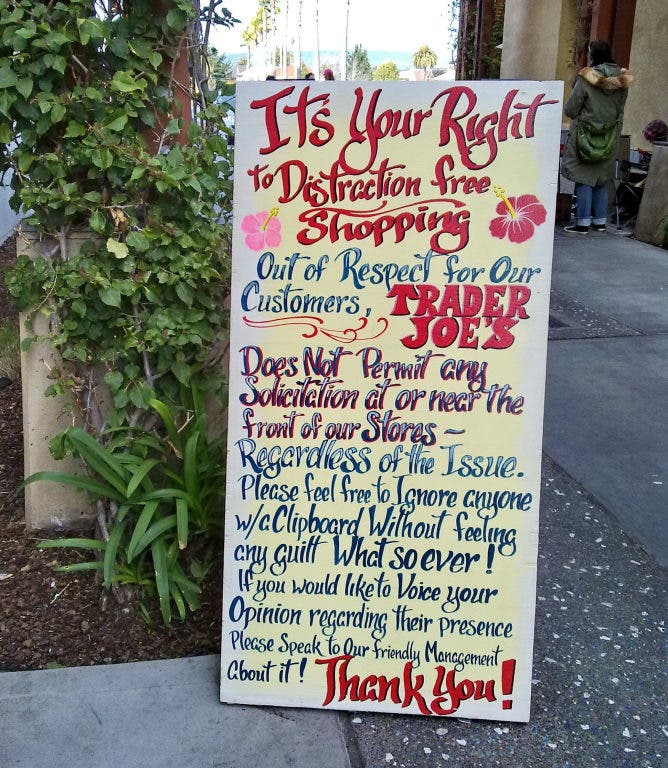 It's Your Right
to Distraction free
Shopping
Out of Respect for Our
Customers, TRADER
JOE'S
Does Not Permit any
Solicitation at or near the
front of our Stores ~
Regardless of the Issue.
Please feel free to Ignore anyone
w/a Clipboard Without feeling
any guilt What so ever!
If you would like to Voice your
Opinion regarding their presence
Please Speak to Our friendly Management
about it! Thank You!